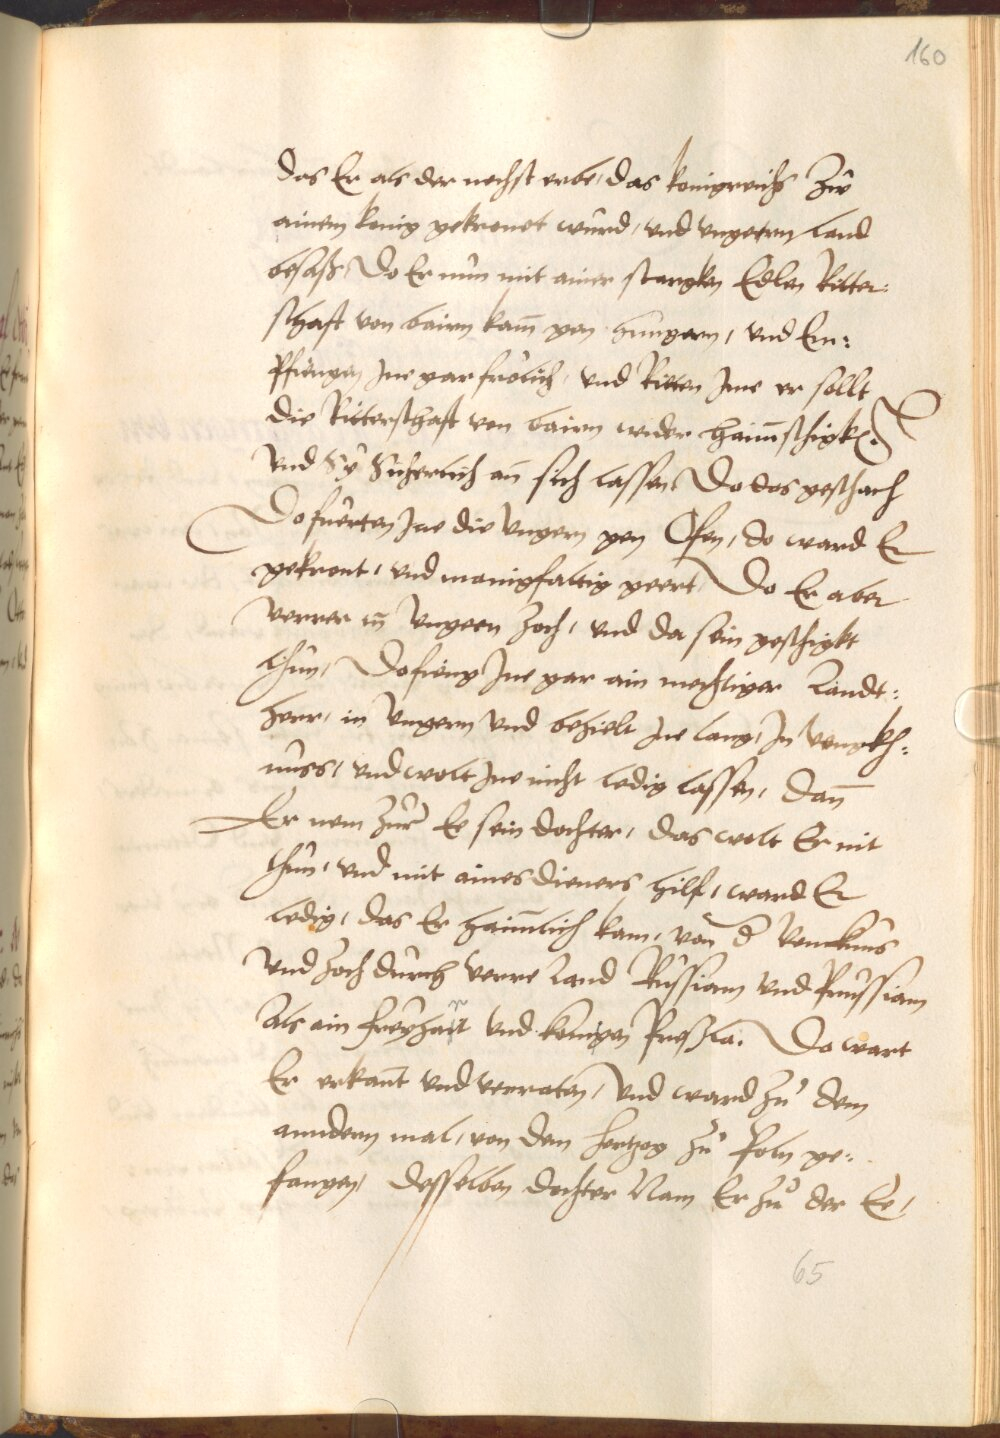 160
das Er als der nechst erbe, das konigreichs zw
ainem konig gekronet wurd, und ungeern land
besass, Do Er nun mit ainer starcken Edlen Ritter:
schaft von bairn kam gen hungern, und Em:
pfiengen Ine gar frölich, und Ritten Ime er sollt
die Ritterschaft von bairn wider haimschigken
und Sy Sicherlich an sich lassen Do das geschach
Do fuerten Ine die Ungern gen Ofen, do ward Er
gekront, und manigfaltig geert, Do Er aber
verrer in Ungern zoch, und da sein geschigkt
thun, Do fieng Ine gar ain mechtiger Landt:
herr, in Ungern und behielt Ine lang, In vengkh:
nuss, und wolt Ine nicht ledig lassen, dan
Er nem zur Ee sein dochter, das wolt Er nit
thun, und mit aines dieners hilf, ward Er
ledig, das Er haimlich kam, von d venckhnus
und zoch durch verre Land Russiam und Prussiam
als ain freyhait und kom gen Preszla. Do wart
Er erkant und verraten, und ward zu dem
anndern mal, von dem Hertzog zu Poln ge:
fangen, desselben dochter Nam Er zu der Ee,
65